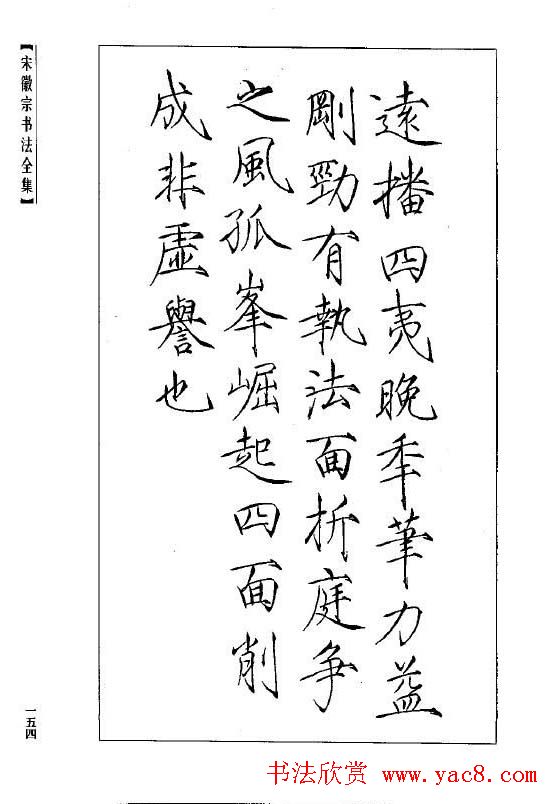 【宋徽宗书法全集】
遠播四夷晚年筆力益
剛勁有執法面折庭爭
之風孤峯崛起四面削
成非虛譽也
一五四
书法欣赏 www.yac8.com